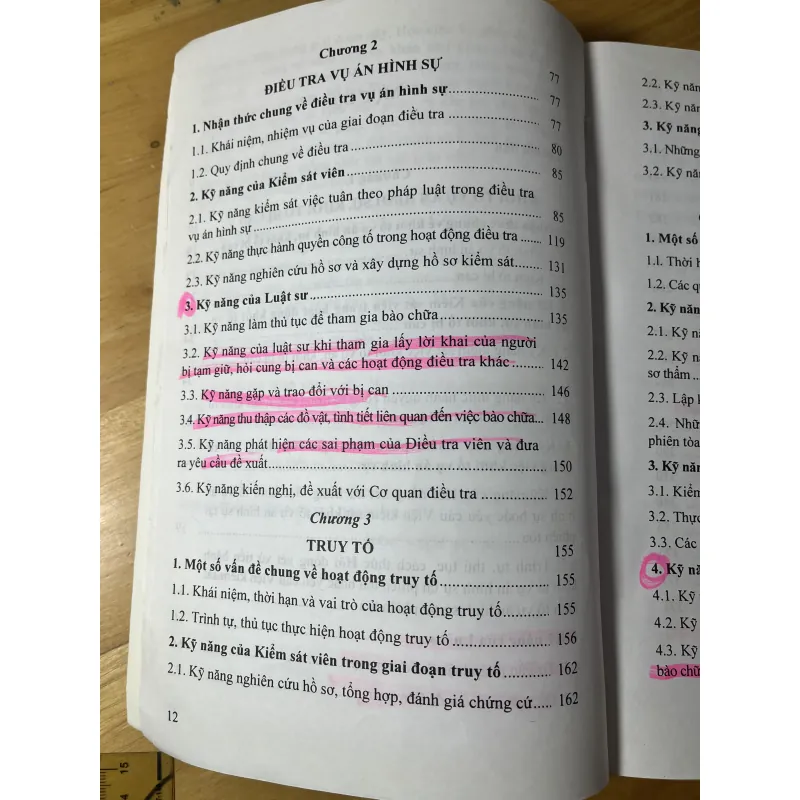 Chương 2
ĐIỀU TRA VỤ ÁN HÌNH SỰ 77
1. Nhận thức chung về điều tra vụ án hình sự 77
1.1. Khái niệm, nhiệm vụ của giai đoạn điều tra 77
1.2. Quy định chung về điều tra 80
2. Kỹ năng của Kiểm sát viên 85
2.1. Kỹ năng kiểm sát việc tuân theo pháp luật trong điều tra
vụ án hình sự 85
2.2. Kỹ năng thực hành quyền công tố trong hoạt động điều tra 119
2.3. Kỹ năng nghiên cứu hồ sơ và xây dựng hồ sơ kiểm sát 131
3. Kỹ năng của Luật sư 135
3.1. Kỹ năng làm thủ tục để tham gia bào chữa 135
3.2. Kỹ năng của luật sư khi tham gia lấy lời khai của người
bị tạm giữ, hỏi cung bị can và các hoạt động điều tra khác 142
3.3. Kỹ năng gặp và trao đổi với bị can 146
3.4. Kỹ năng thu thập các đồ vật, tình tiết liên quan đến việc bào chữa... 148
3.5. Kỹ năng phát hiện các sai phạm của Điều tra viên và đưa
ra yêu cầu đề xuất 150
3.6. Kỹ năng kiến nghị, đề xuất với Cơ quan điều tra 152
Chương 3
TRUY TỐ 155
1. Một số vấn đề chung về hoạt động truy tố 155
1.1. Khái niệm, thời hạn và vai trò của hoạt động truy tố 155
1.2. Trình tự, thủ tục thực hiện hoạt động truy tố 156
2. Kỹ năng của Kiểm sát viên trong giai đoạn truy tố 162
2.1. Kỹ năng nghiên cứu hồ sơ, tổng hợp, đánh giá chứng cứ 162
12
2.2. Kỹ năn
2.3. Kỹ năn
3. Kỹ năng
3.1. Những
3.2. Kỹ nă
1. Một số
1.1. Thời h
1.2. Các q
2. Kỹ năn
2.1. Kỹ n
2.2. Kỹ n
sơ thẩm
2.3. Lập
2.4. Nhữ
phiên tòa
3. Kỹ năn
3.1. Kiểm
3.2. Thực
3.3. Các
4. Kỹ nă
4.1. Kỹ
4.2. Kỹ
4.3. Kỹ
bào chữ
15